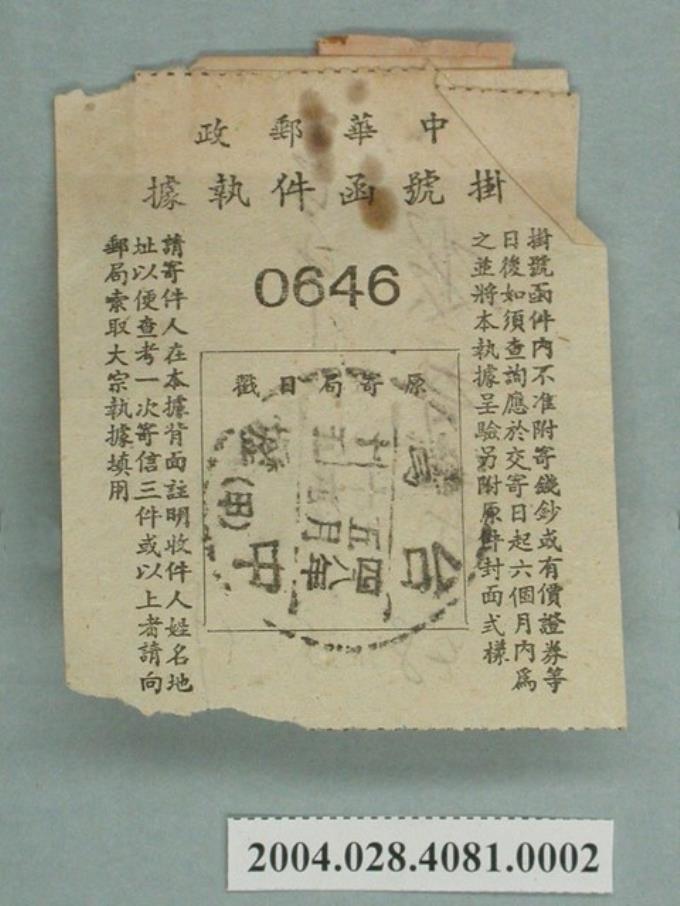 中華郵政
掛號函件執據
掛號函件內不准附寄錢鈔或有價證券等
日後如須查詢應於交寄日起六個月內爲
之並將本執據呈驗另附原件封面式樣
0646
原寄局日戳
台
中
(甲)
四八年
五月
請寄件人在本據背面註明收件人姓名地
址以便查考一次寄信三件或以上者請向
郵局索取大宗執據填用
2004.028.4081.0002